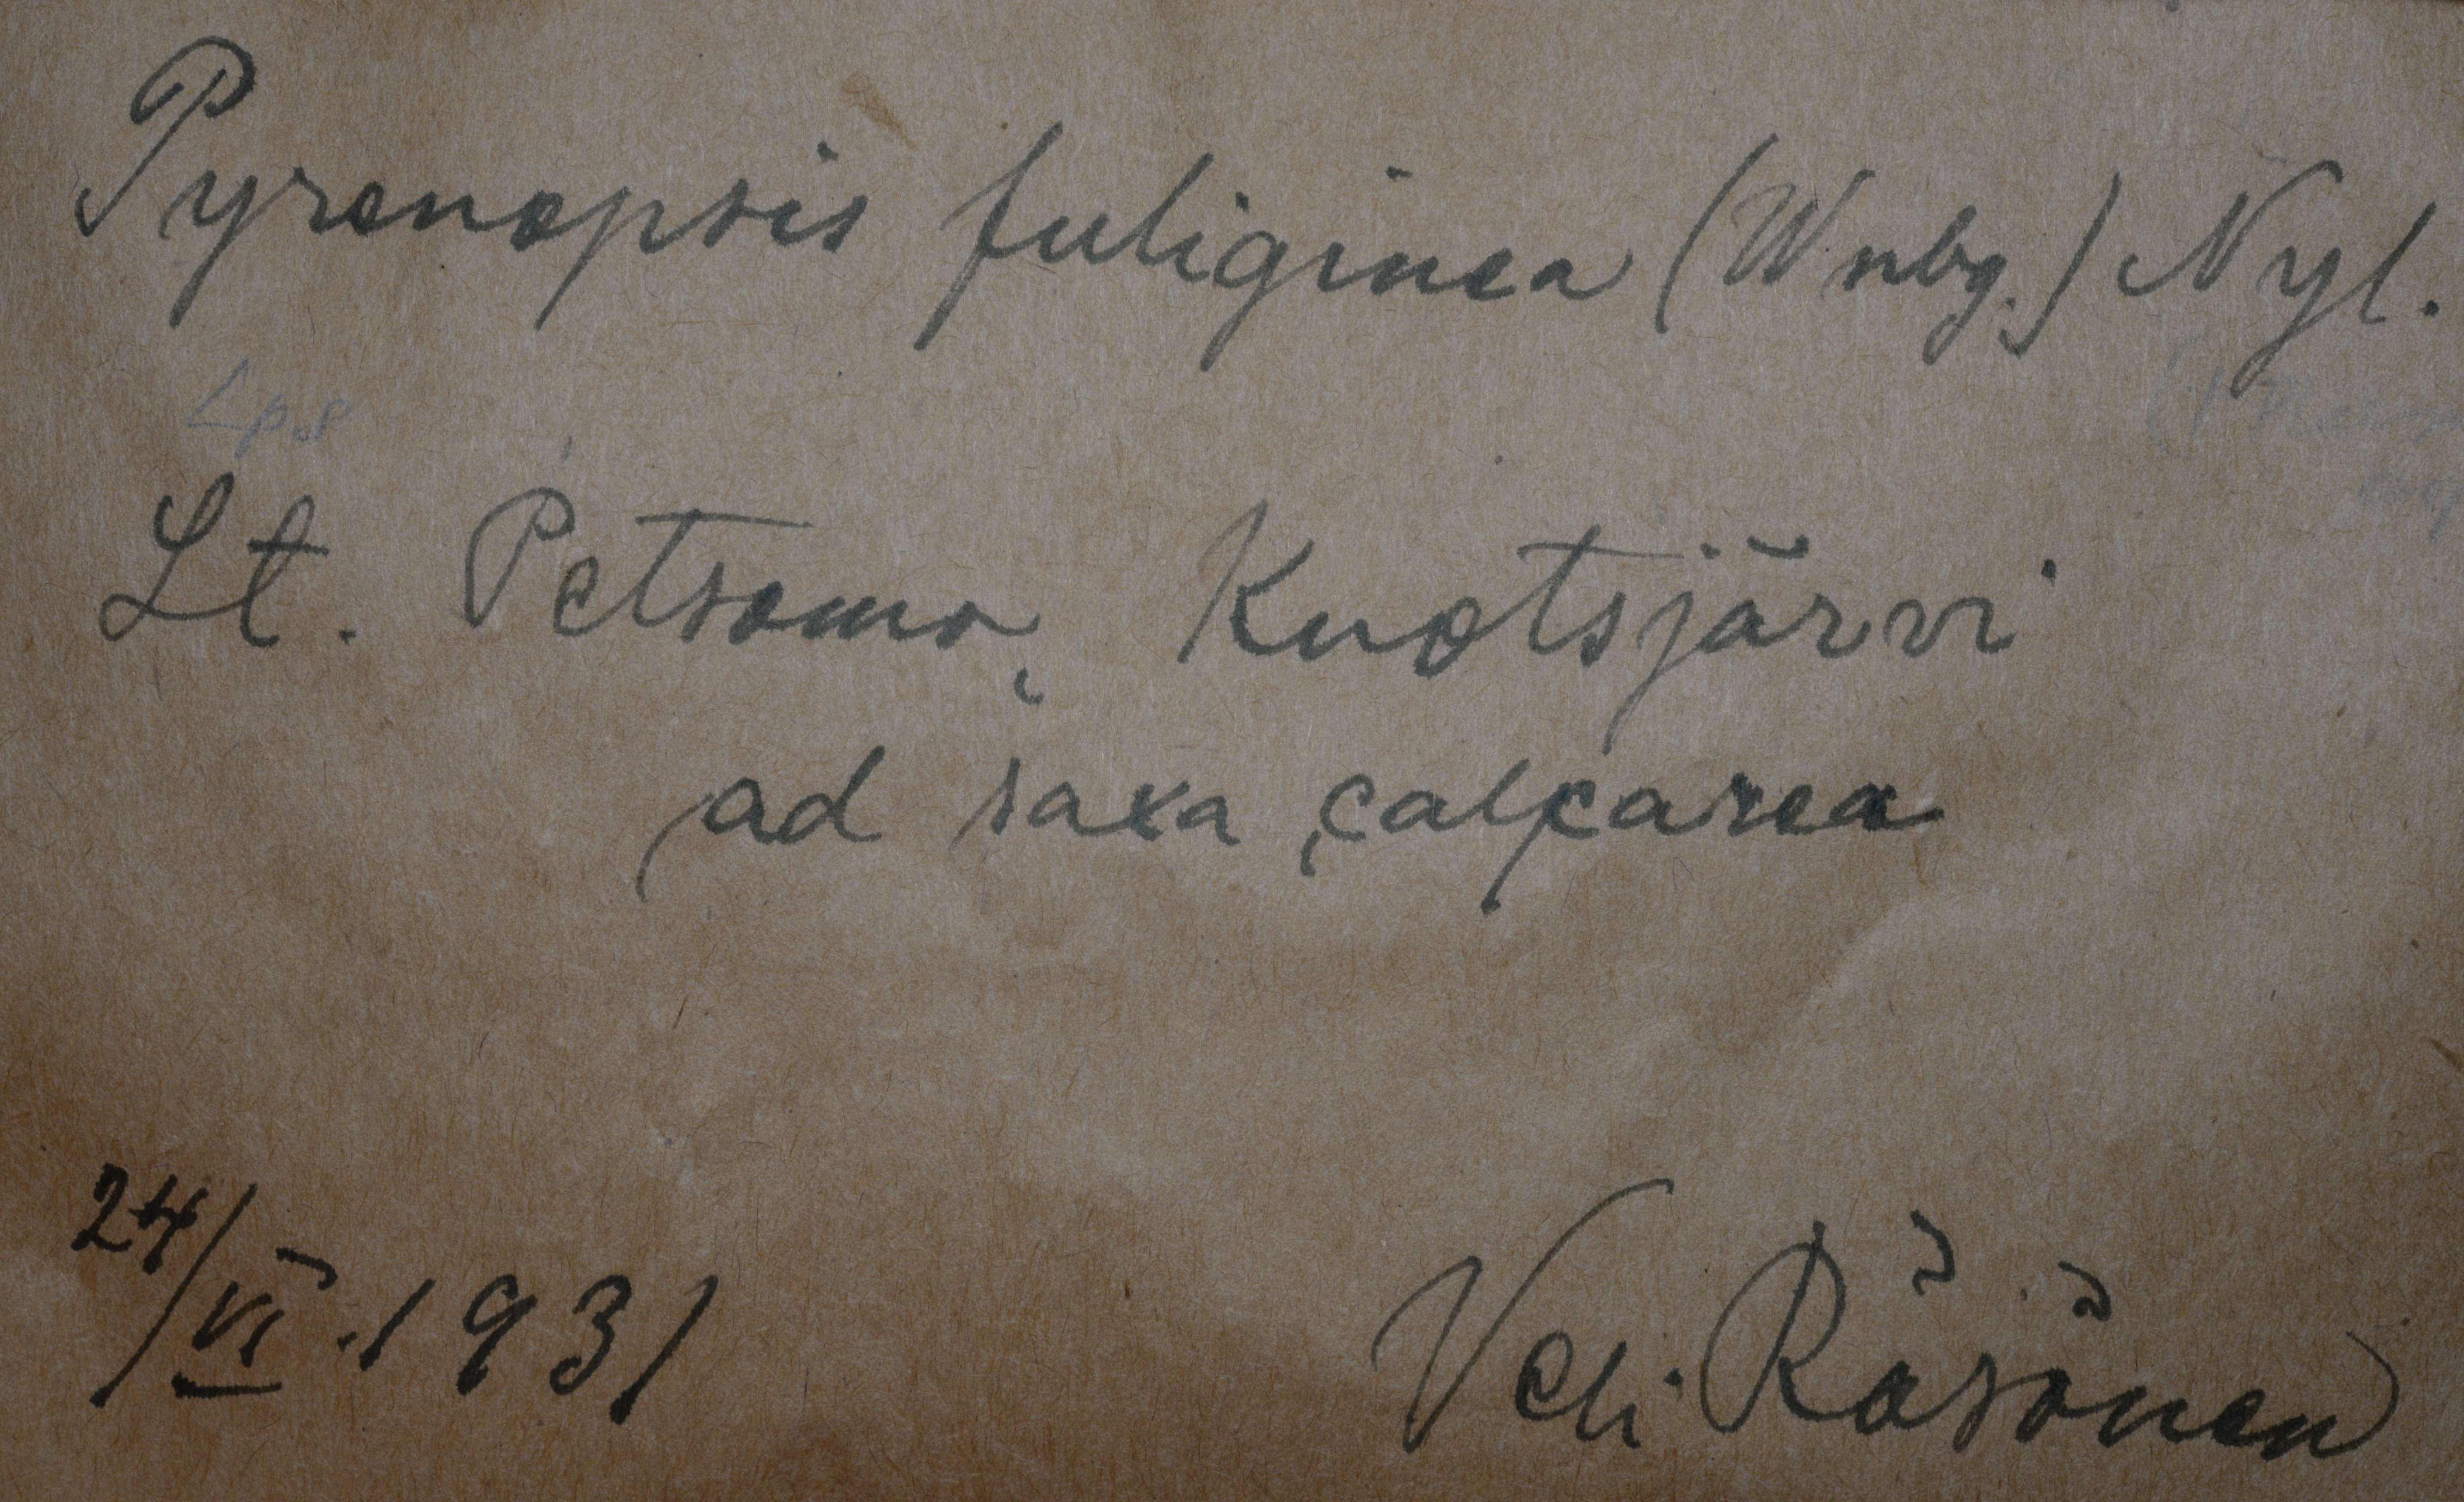 Pyrenopsis fuliginea (Wnbg.) Nyl.
Lps
Lt. Petsamo, Kuotsjärvi
ad saxa calcarea
24/VI.1931
Veli Räsänen